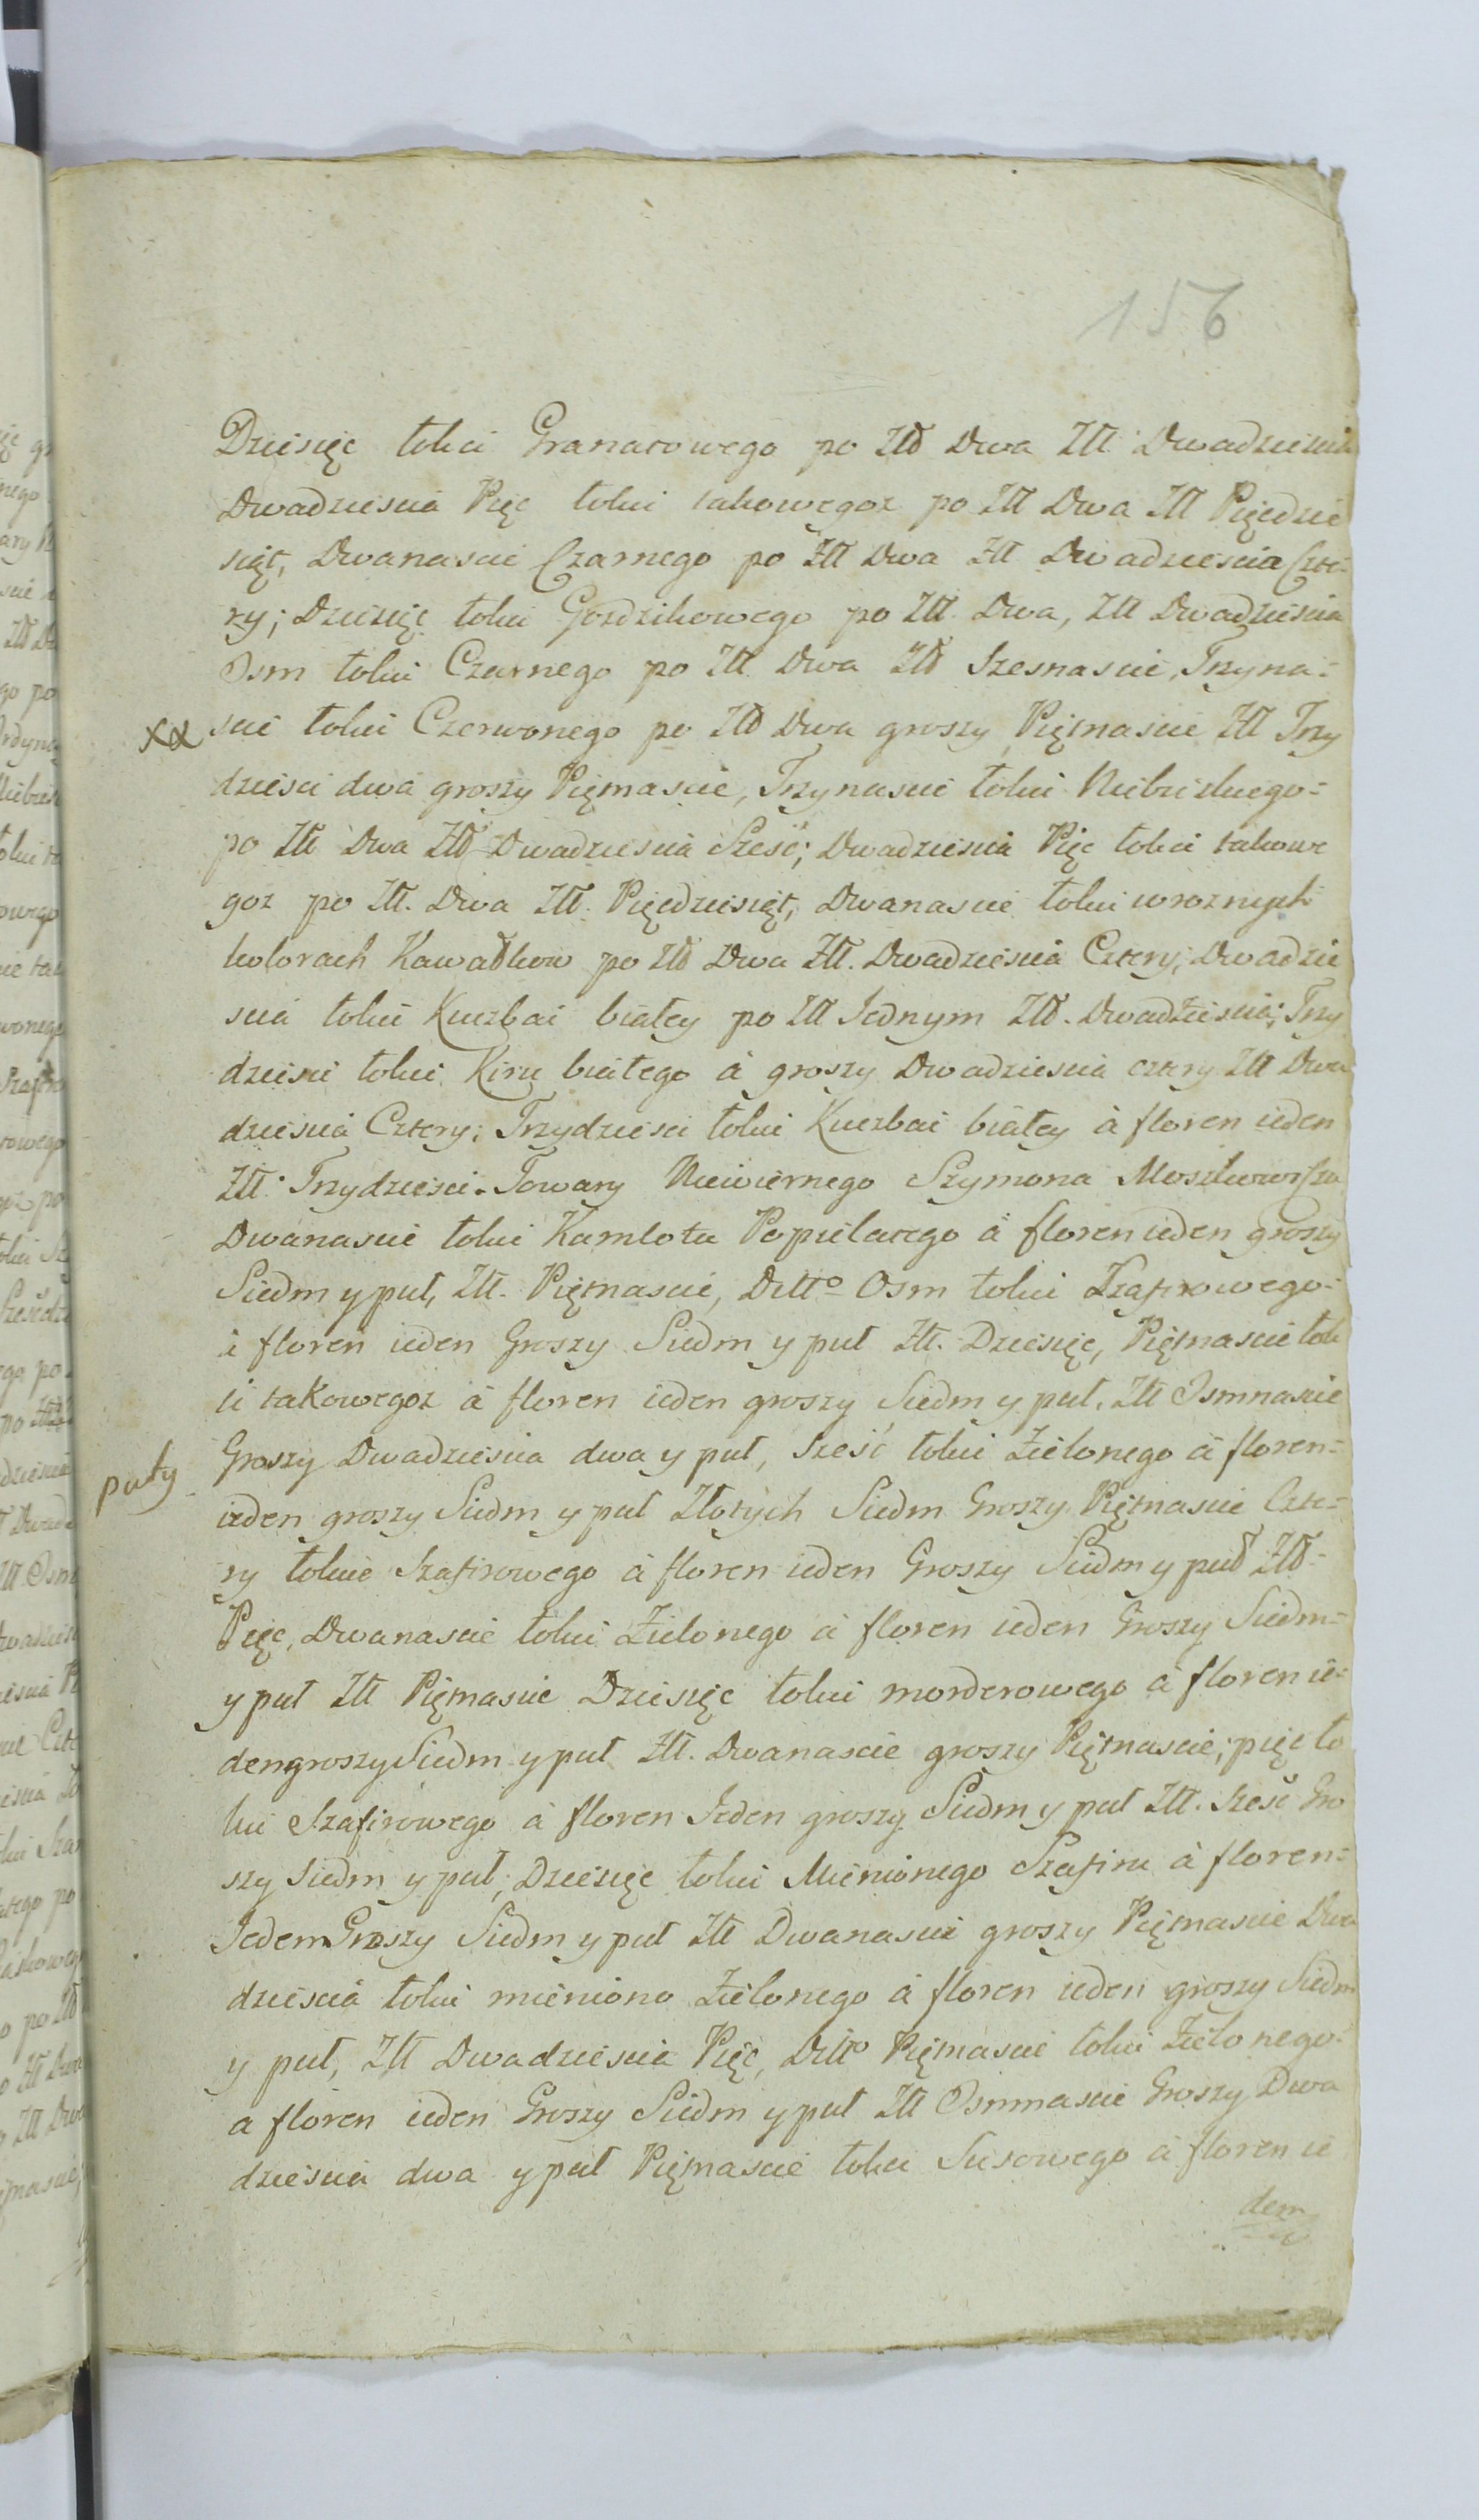 156
Dziesięc łokci Granatowego po Złł Dwa Złł Dwadziescia
Dwadziescia Pięc łokci takowegoz po Złł Dwa Złł Pięcdzie
siąt, Dwanascie Czarnego po Złł Dwa Złł Dwadziescia Czte=
ry; Dziesięc łokci Gozdzikowego po Złł. Dwa, Złł Dwadziescia
Osm łokci Czarnego po Złł Dwa Złł Szesnascie, Trzyna=
scie łokci Czerwonego po Złł Dwa groszy Piętnascie Złł Trzy
dziesci dwa groszy Piętnascie, Trzynascie łokci Niebieskiego=
po Złł Dwa Złł Dwadziescia Sześć; Dwadziescia Pięc łokci takowe
goz po Złł. Dwa Złł. Pięcdziesiąt, Dwanascie łokci w roznych
kolorach Kawałkow po Złł Dwa Złł. Dwadziescia Cztery; Dwadzie
scia łokci Kuczbai białey po Złł Jednym Złł. Dwadziescia; Trzy
dziesci łokci Kiru białego à groszy Dwadziescia cztery Złł Dwa
dziescia Cztery; Trzydziesci łokci Kuczbai białey à floren ieden
Złł. Trzydziesci. Towary Niewiernego Szymona Moszkowicza
Dwanascie łokci Kamlotu Popielatego à floren ieden groszy
Siedm y puł, Złł. Piętnascie, Ditto Osm łokci Szafirowego=
à floren ieden Groszy Siedm y puł Złł. Dziesięc, Piętnascie łok
ci takowegoz à floren ieden groszy Siedm y puł. Złł Osmnascie
Groszy Dwadziescia dwa y puł, Sześć łokci Zielonego à floren=
ieden groszy Siedm y puł Złotych Siedm Groszy Piętnascie Czte=
ry łokcie Szafirowego à floren ieden Groszy Siedm y puł Złł=
Pięc, Dwanascie łokci Zielonego à floren ieden Groszy Siedm=
y puł Złł Piętnascie Dziesięc łokci morderowego à floren ie=
den groszy Siedm y puł Złł. Dwanascie groszy Piętnascie; pięc ło
kci Szafirowego à floren Jeden groszy Siedm y puł Złł. Sześć Gro
szy Siedm y puł; Dziesięc łokci Mienionego Szafiru à floren=
Jeden Groszy Siedm y puł Złł Dwanascie groszy Piętnascie Dwa
dziescia łokci mieniono Zielonego à floren ieden groszy Siedm
y puł, Złł Dwadziescia Pięc, Ditto Piętnascie łokci Zielonego=
a floren ieden Groszy Siedm y puł Złł Osmnascie Groszy Dwa
dziescia dwa y puł Piętnascie łokci à floren ie
den
puły